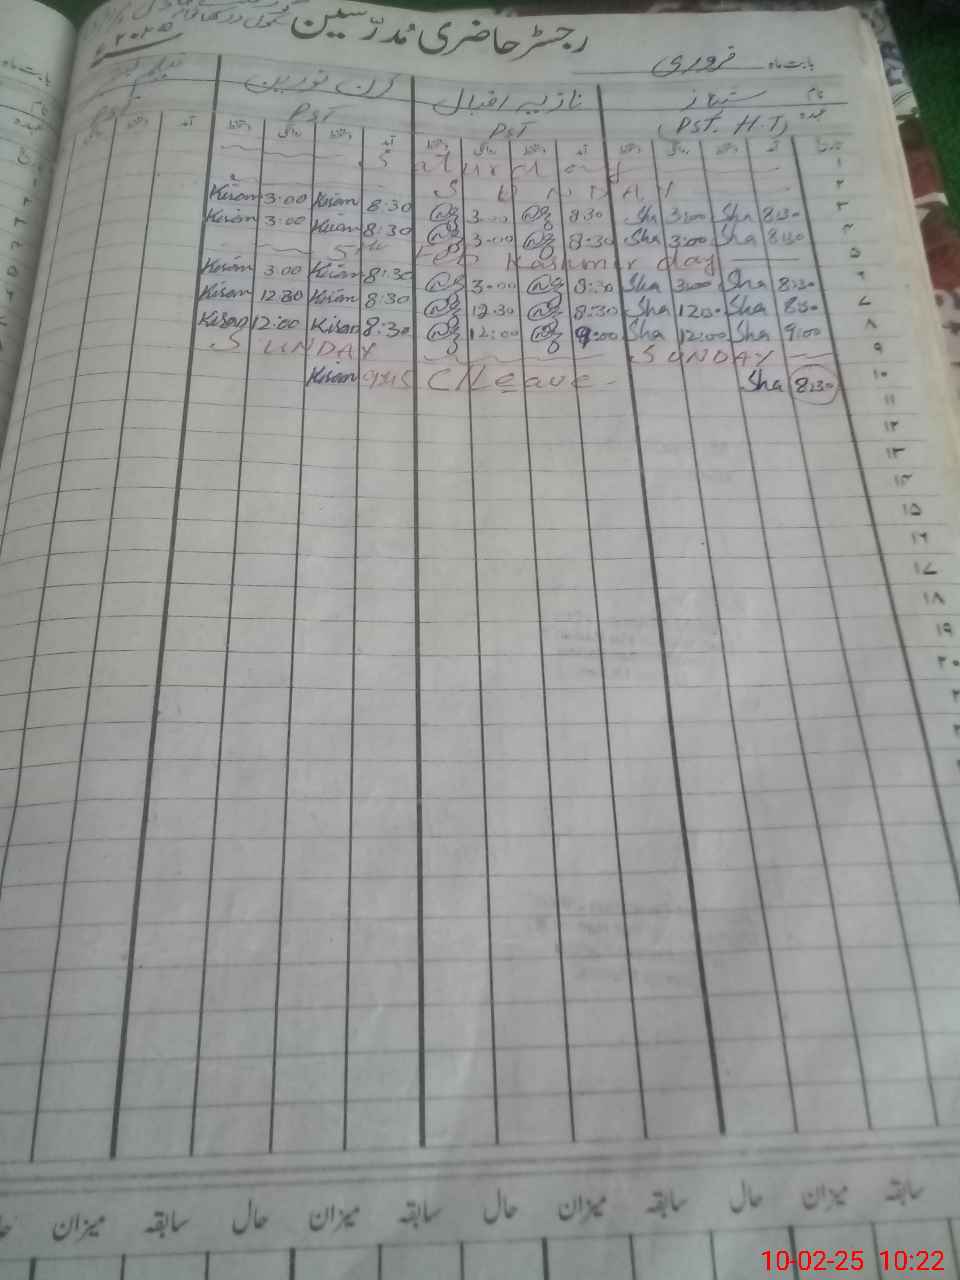 رجسٹر حاضری مُدرّسین
۲۰۲۵
بابت ماہ فروری
نام شہناز نازیہ اقبال کرن نورین
عہدہ (PST. H.T) PST PST PST
تاریخ آمد دستخط روانگی دستخط آمد دستخط روانگی دستخط آمد دستخط روانگی دستخط آمد
۱ Saturday
۲ SUNDAY
۳ 8:30 Sha 3:00 Sha 8:30 3:00 8:30 Kiran 3:00 Kiran
۴ 8:30 Sha 3:00 Sha 8:30 3:00 8:30 Kiran 3:00 Kiran
۵ 5th Feb Kashmir day
۶ 8:30 Sha 3:00 Sha 8:30 3:00 8:30 Kiran 3:00 Kiran
۷ 8:30 Sha 12:30 Sha 8:30 12:30 8:30 Kiran 12:30 Kiran
۸ 9:00 Sha 12:00 Sha 9:00 12:00 8:30 Kiran 12:00 Kiran
۹ SUNDAY SUNDAY
۱۰ 8:30 Sha C/Leave 9:45 Kiran
۱۱
۱۲
۱۳
۱۴
۱۵
۱۶
۱۷
۱۸
۱۹
۲۰
سابقہ میزان حال سابقہ میزان حال سابقہ میزان حال سابقہ میزان
10-02-25 10:22